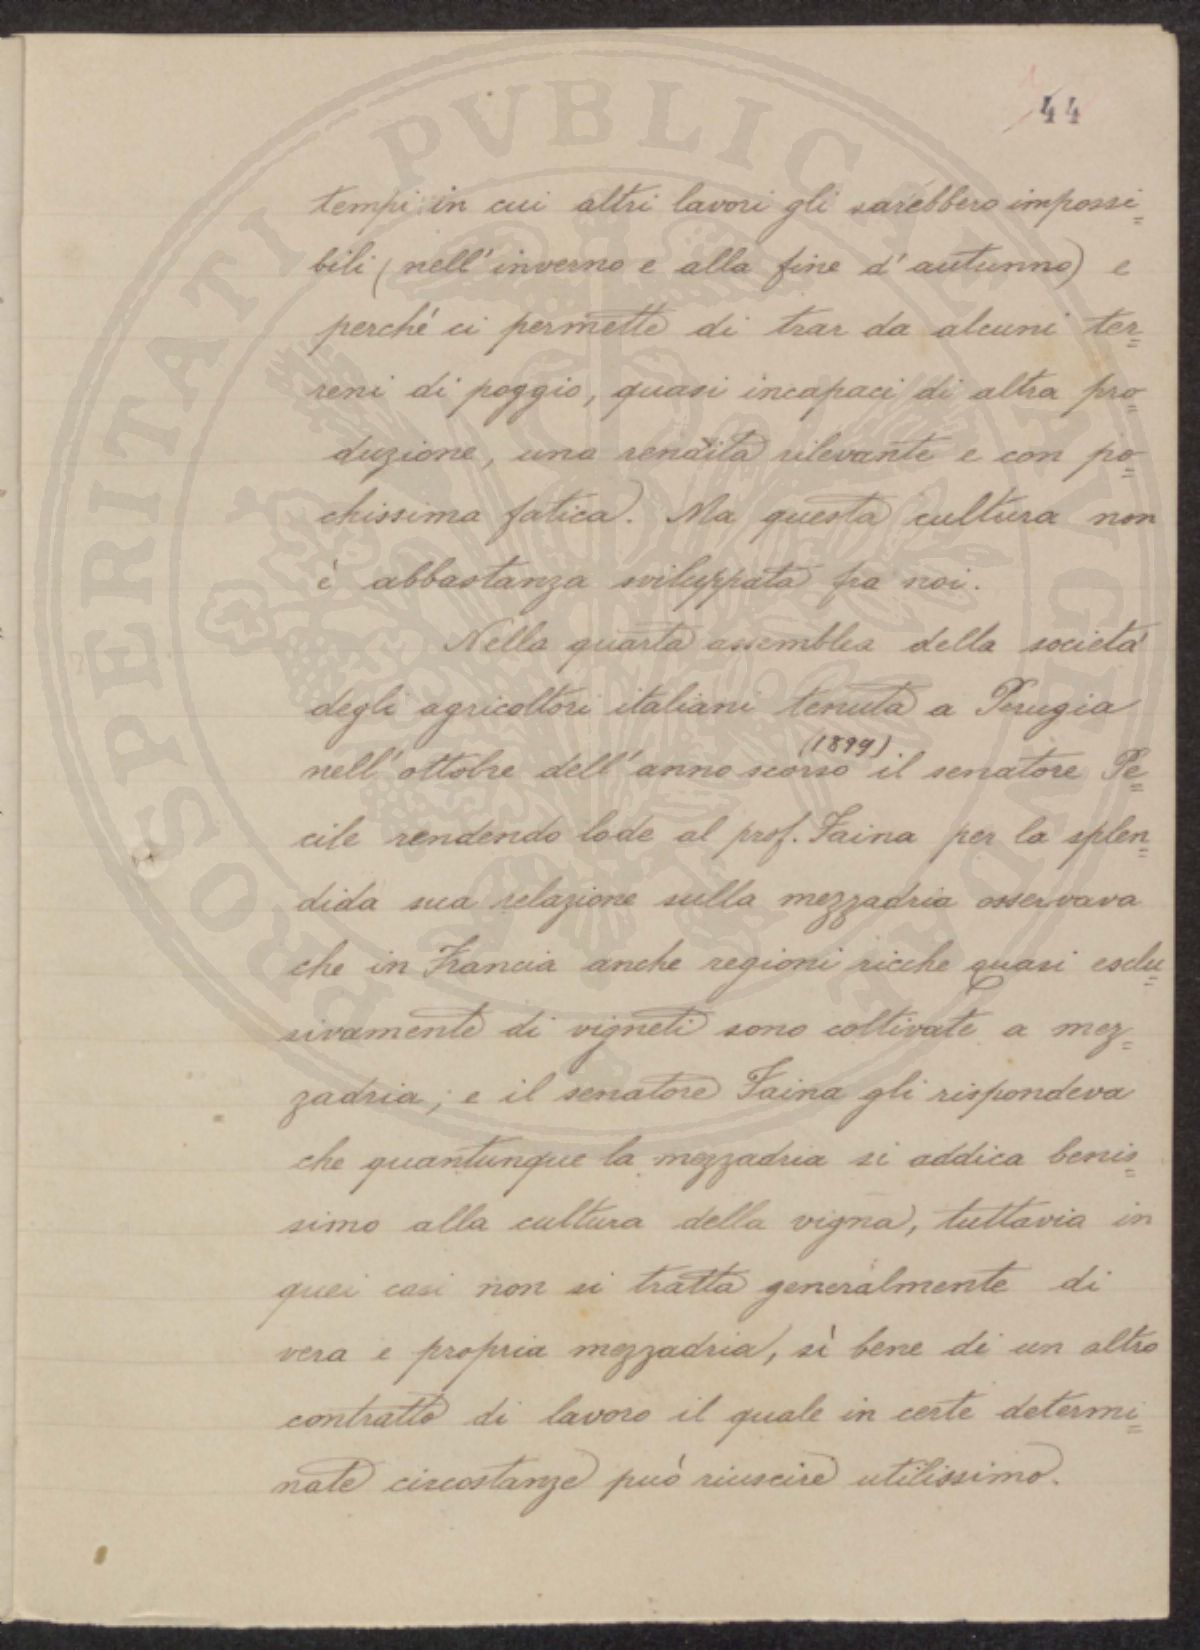 44
tempi in cui altri lavori gli sarebbero impossi=
bili (nell'inverno e alla fine d'autunno) e
perché ci permette di trar da alcuni ter=
reni di poggio, quasi incapaci di altra pro=
duzione, una rendita rilevante e con po=
chissima fatica. Ma questa cultura non
è abbastanza sviluppata fra noi.
Nella quarta assemblea della società
degli agricoltori italiani tenuta a Perugia
(1899)
nell'ottobre dell'anno scorso il senatore Pe=
cile rendendo lode al prof. Faina per la splen=
dida sua relazione sulla mezzadria osservava
che in Francia anche regioni ricche quasi esclu=
sivamente di vigneti sono coltivate a mez=
zadria; e il senatore Faina gli rispondeva
che quantunque la mezzadria si addica benis=
simo alla cultura della vigna, tuttavia in
quei casi non si tratta generalmente di
vera e propria mezzadria, sì bene di un altro
contratto di lavoro il quale in certe determi=
nate circostanze può riuscire utilissimo.
PROSPERITATI PVBLICAE AVGENDAE